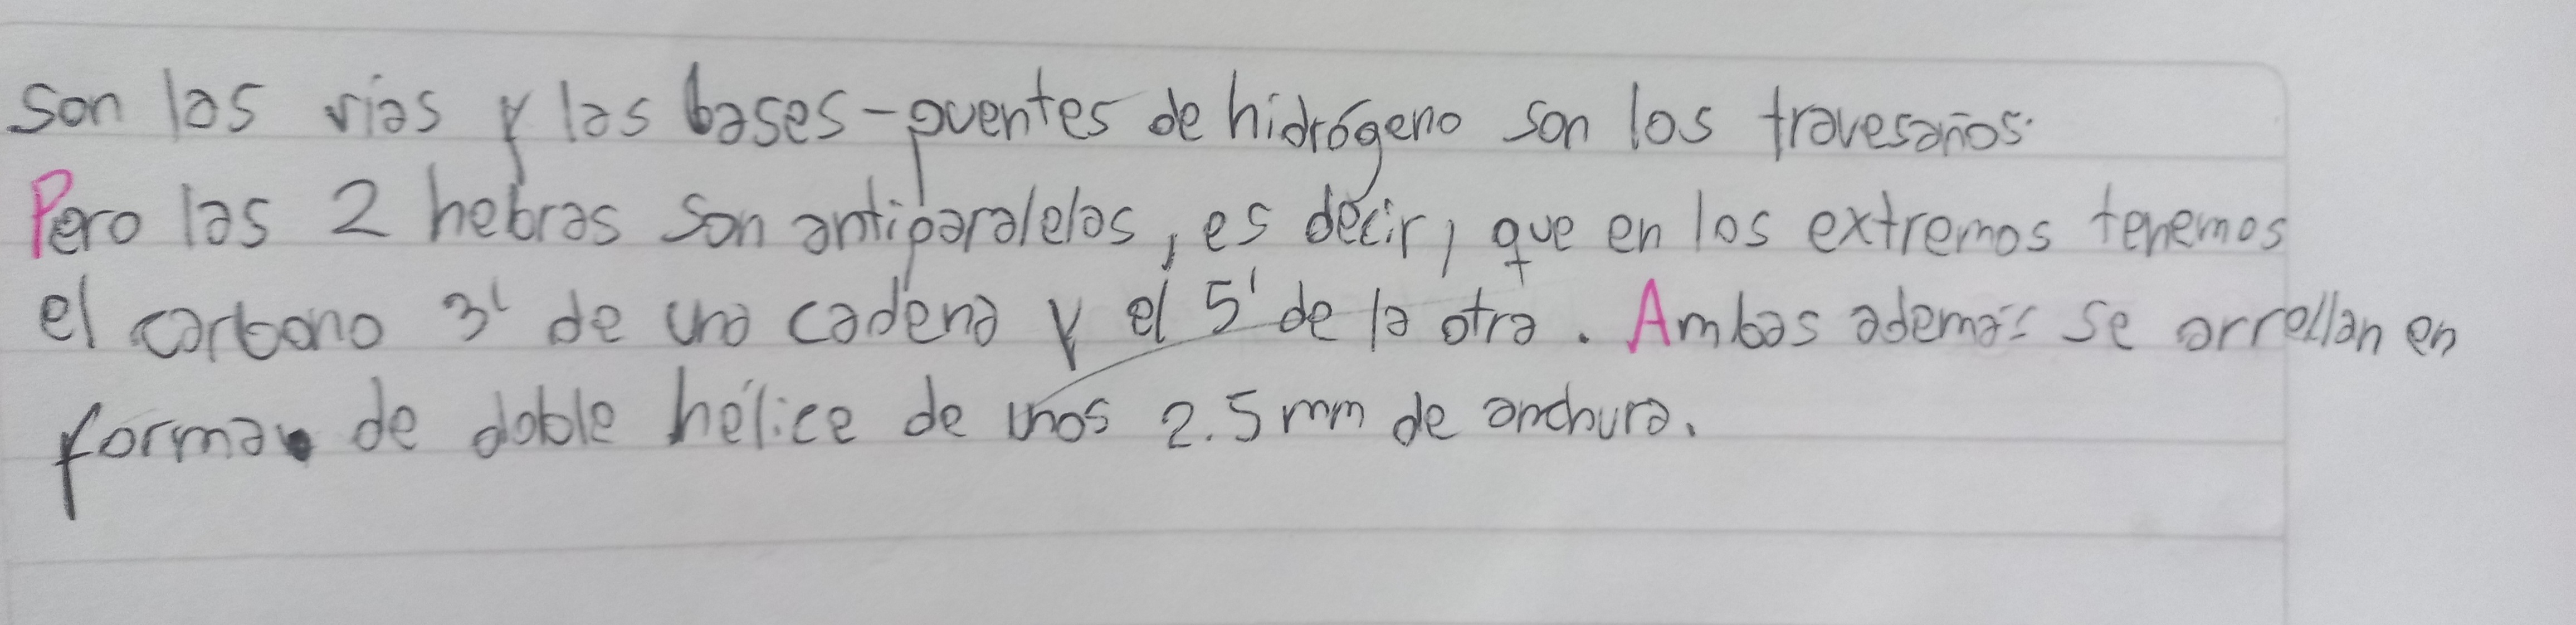 son las vías y las bases-puentes de hidrógeno son los travesaños.
Pero las 2 hebras son antiparalelas, es decir, que en los extremos tenemos
el carbono 3' de una cadena y el 5' de la otra. Ambas además se arrollan en
forma de doble hélice de unos 2.5 mm de anchura.